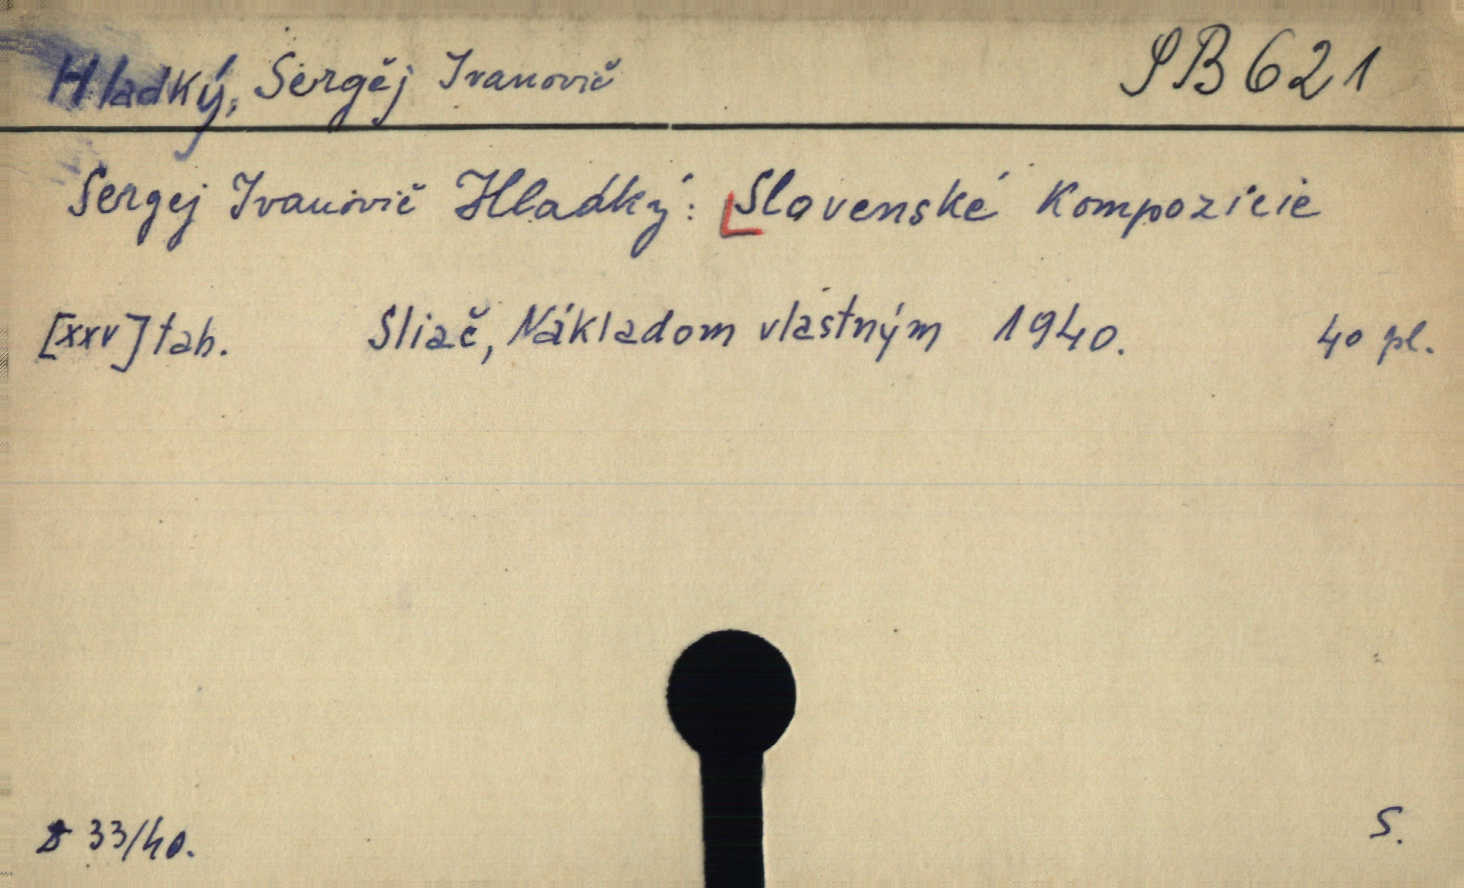 Hladký, Sergěj Ivanovič SB 621
Sergej Ivanovič Hladký: Slovenské Kompozície
[xxv] tab. Sliač, Nákladom vlastným 1940. 40 pl.
33/40. S.